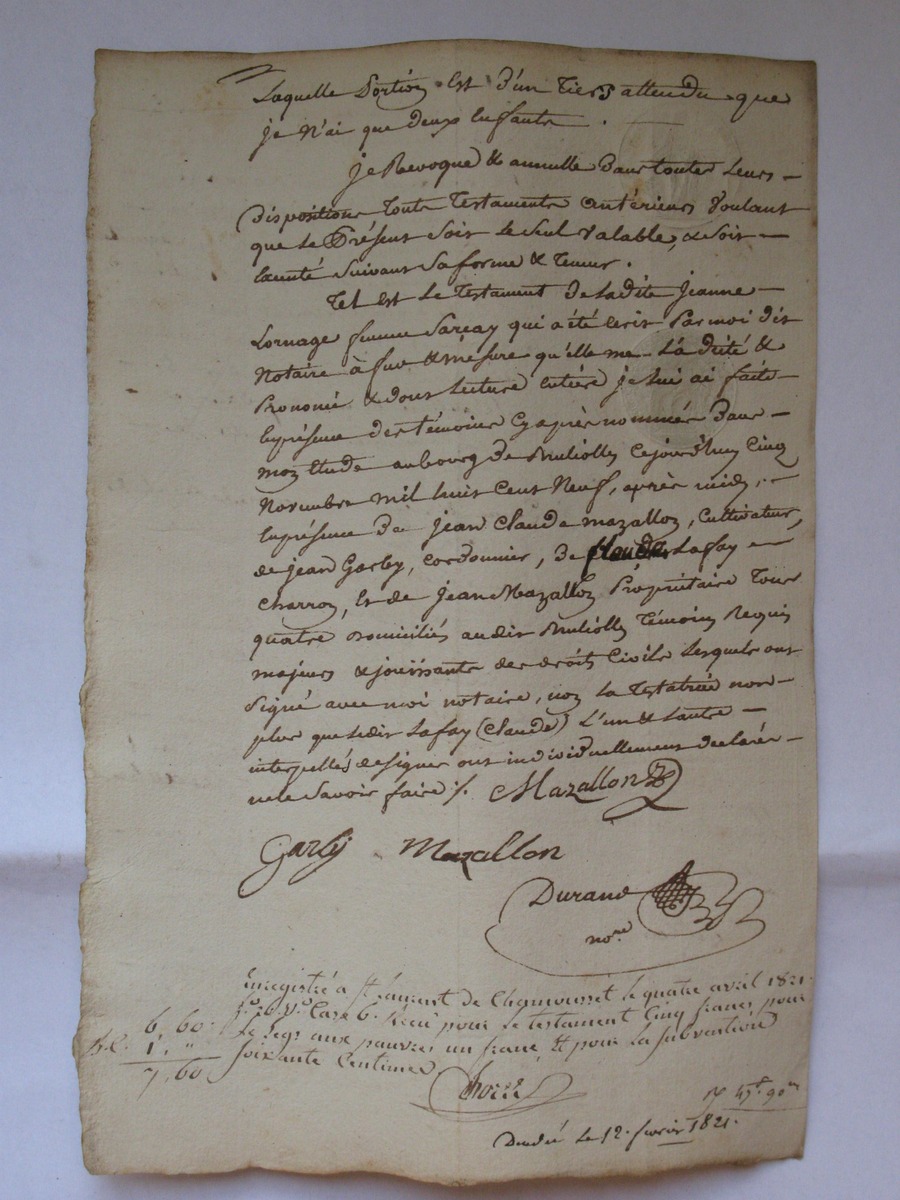 Laquelle Portion Est D'un Tiers attendu que
je N'ai que deux Enfants.
je Revoque & annulle Dans toutes Leurs
Dispositions Touts Testaments antérieurs Voulant
que Le Présent Soit Le Seul Valable, & Soit
Exécuté Suivant Sa forme & Teneur.
Tel Est Le Testament De Ladite Jeanne
Lornage femme Sarcay qui a été Ecrit Par moi dit
Notaire à fur & mésure qu'elle me L'a Dicté &
Prononcé & dont Lecture Entière je Lui ai faite
En présence des témoins Cy après nommés Dans
mon Etude au bourg De Brullioles Cejourd'huy Cinq
Novembre mil huit Cent Neuf, après midy,
En présence De Jean Claude Mazallon, Cultivateur,
de Jean Garby, Cordonnier, De Claude Lafay
Charron, Et de Jean Mazallon Propriétaire Tous
quatre Domiciliés audit Brullioles Témoins Requis
majeurs & jouissants des droits Civils Lesquels ont
Signé avec moi notaire, non La Testatrice non
plus que Ledit Lafay (Claude) L'un & L'autre
interpellés de Signer ont individuellement declarér
ne le Savoir faire /. Mazallon
Garby Mazallon
Durand
no.re
Enregistré à St Laurent de Chamousset le quatre avril 1821.
f.o 26 v.o Case 6. Reçu pour le testament Cinq francs pour
6, 60. Le Legs aux pauvres un franc, & pour la subvention
1, "
Soixante Centimes.
7, 60
47f. 90
Le 12. fevrier 1821.